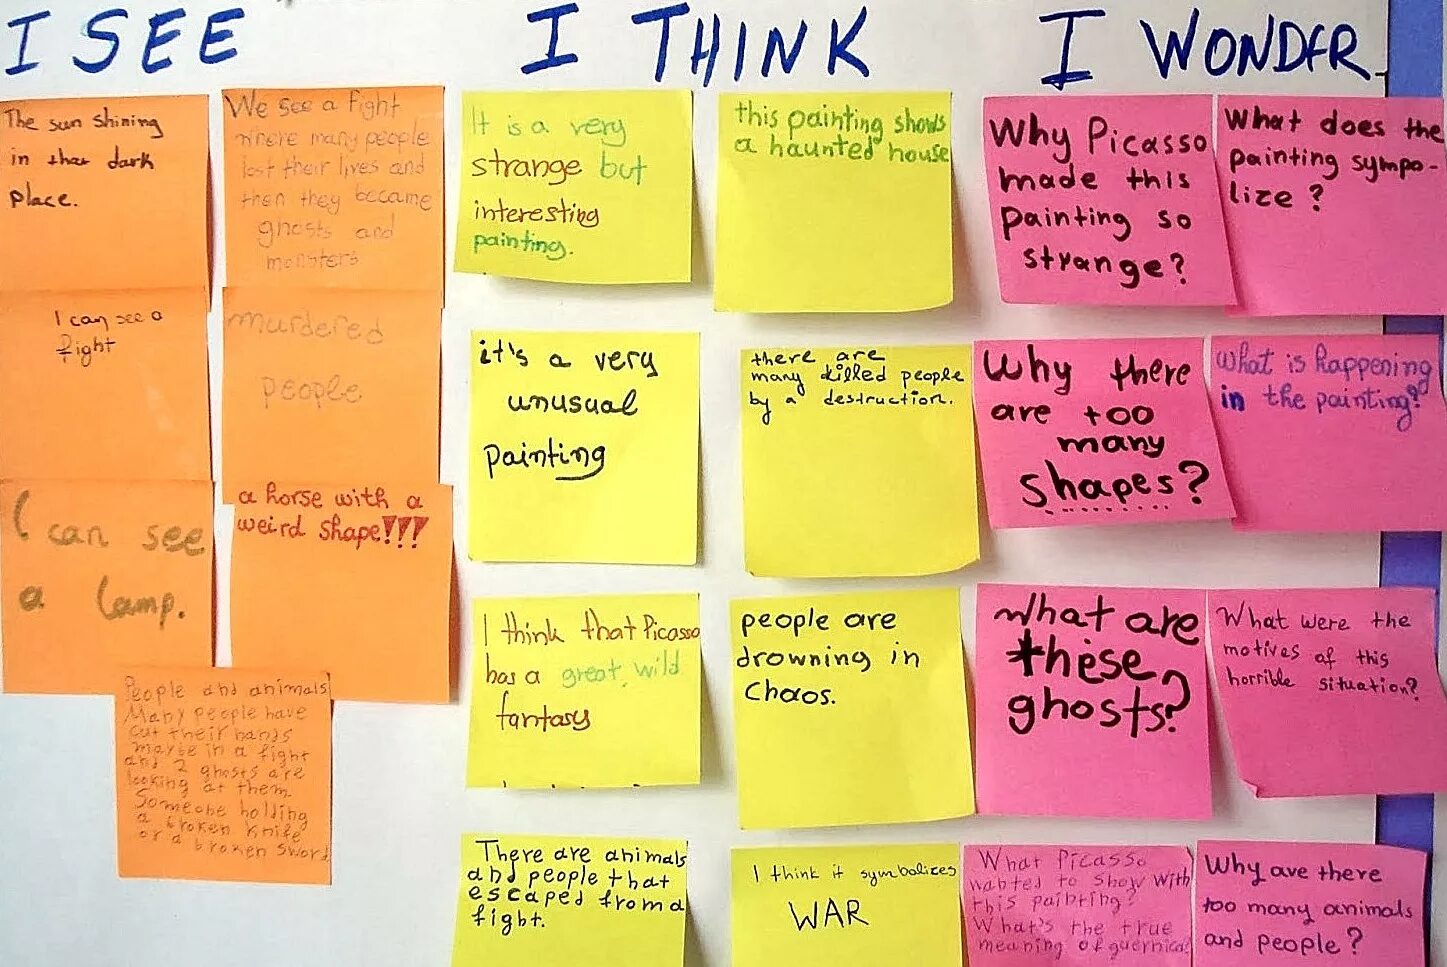 I SEE
I THINK
I WONDER
The sun shining
in that dark
place.
We see a fight
where many people
lost their lives and
then they became
ghosts and
monsters
I can see a
fight
murdered
people
I can see
a lamp.
a horse with a
weird shape!!!
People and animals
Many people have
cut their hands
maybe in a fight
and 2 ghosts are
looking at them
Someone holding
a broken knife
or a broken sword
It is a very
strange but
interesting
painting.
this painting shows
a haunted house
it's a very
unusual
painting
there are
many killed people
by a destruction.
I think that Picasso
has a great, wild
fantasy
people are
drowning in
chaos.
There are animals
and people that
escaped from a
fight.
I think it symbolizes
WAR
Why Picasso
made this
painting so
strange?
What does the
painting sympo-
lize?
Why there
are too
many
shapes?
What is happening
in the painting?
What are
these
ghosts?
What were the
motives of this
horrible situation?
What Picasso
wanted to show with
this painting?
What's the true
meaning of guernica?
Why are there
too many animals
and people?